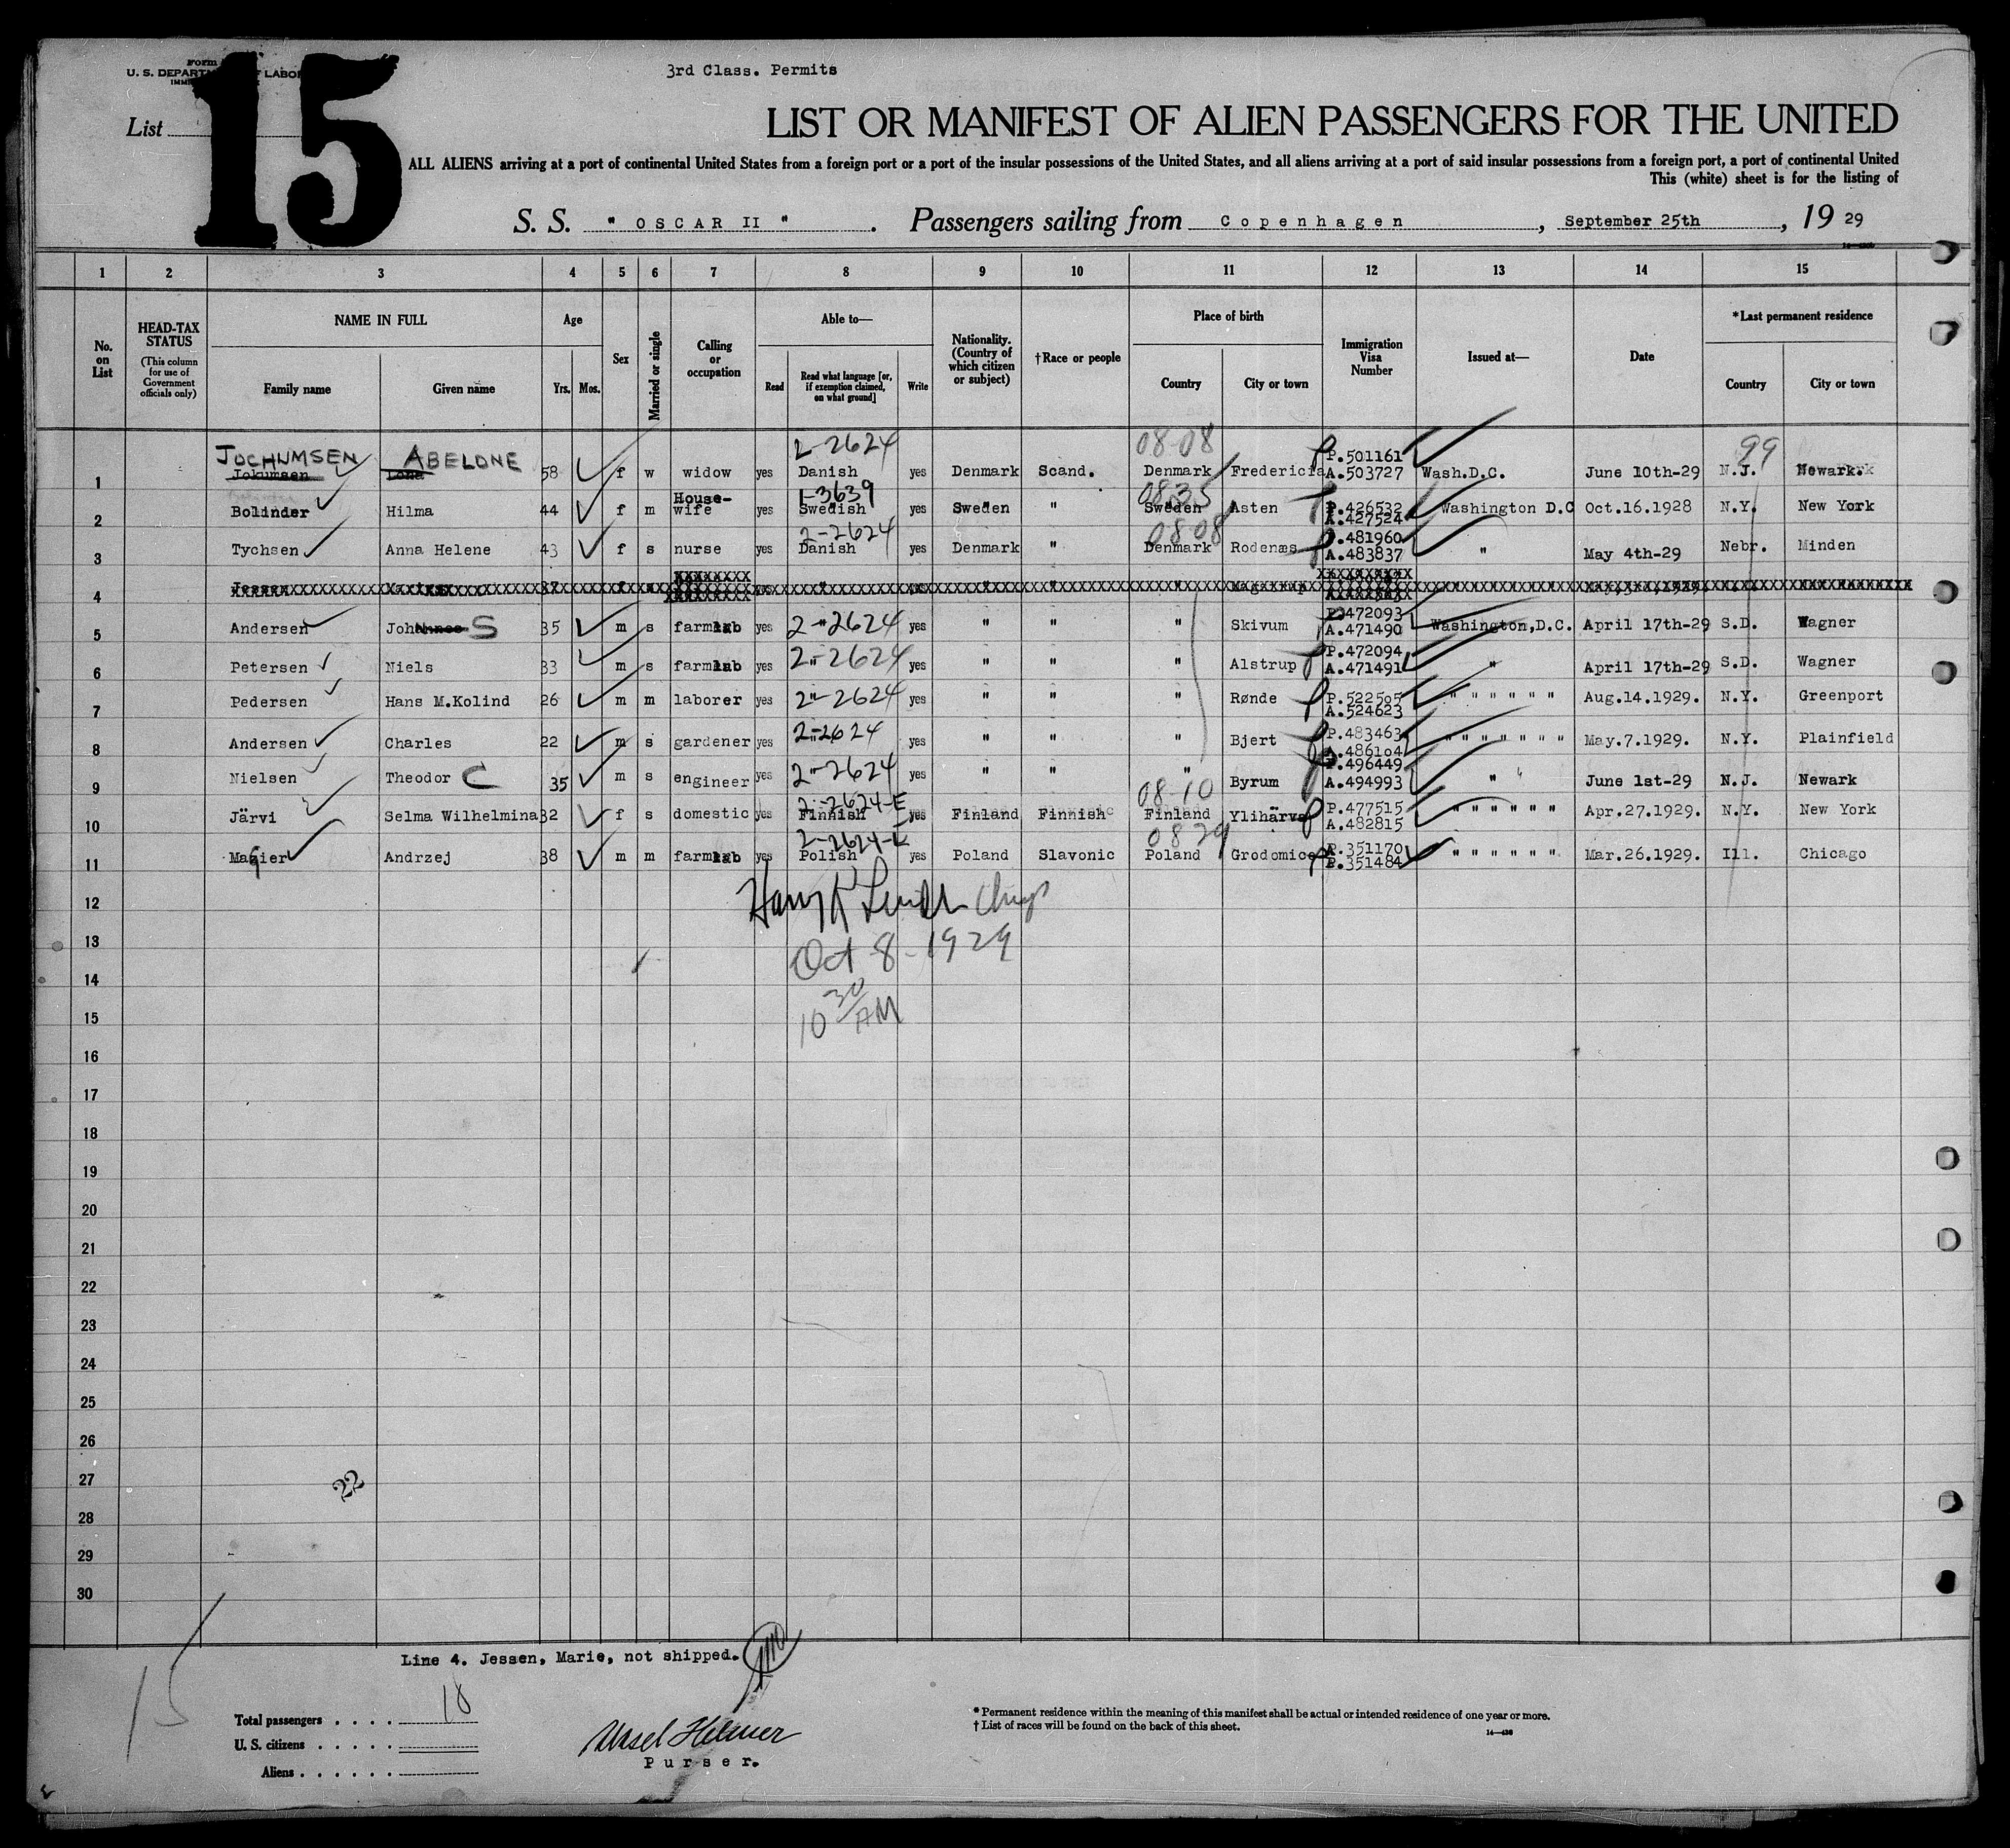 Form
U. S. DEPARTMENT OF LABOR
3rd Class. Permits
15
List
LIST OR MANIFEST OF ALIEN PASSENGERS FOR THE UNITED
ALL ALIENS arriving at a port of continental United States from a foreign port or a port of the insular possessions of the United States, and all aliens arriving at a port of said insular possessions from a foreign port, a port of continental United
This (white) sheet is for the listing of
S. S. " OSCAR II " . Passengers sailing from Copenhagen , September 25th , 19 29
1 2 3 4 5 6 7 8 9 10 11 12 13 14 15
No. on List
HEAD-TAX STATUS (This column for use of Government officials only)
NAME IN FULL Family name Given name
Age Yrs. Mos.
Sex
Married or single
Calling or occupation
Able to— Read Read what language [or, if exemption claimed, on what ground] Write
Nationality. (Country of which citizen or subject)
†Race or people
Place of birth Country City or town
Immigration Visa Number
Issued at—
Date
*Last permanent residence Country City or town
JOCHUMSEN ABELONE 2-2624 08-08 P.501161 99
1 Jokumsen Lona 58 f w widow yes Danish yes Denmark Scand. Denmark Fredericia A.503727 Wash.D.C. June 10th-29 N.J. Newark.
House- 1-3639 0835
2 Bolinder Hilma 44 f m wife yes Swedish yes Sweden " Sweden Asten P.426532 A.427524 Washington D.C Oct.16.1928 N.Y. New York
2-2624 08-08 P.481960
3 Tychsen Anna Helene 43 f s nurse yes Danish yes Denmark " Denmark Rodenæs A.483837 " May 4th-29 Nebr. Minden
4 Jessen
5 Andersen Johannes S 35 m s farmlab yes 2-"2624 yes " " " Skivum P.472093 A.471490 Washington,D.C. April 17th-29 S.D. Wagner
6 Petersen Niels 33 m s farmlab yes 2-"-2624 yes " " " Alstrup P.472094 A.471491 " April 17th-29 S.D. Wagner
7 Pedersen Hans M.Kolind 26 m m laborer yes 2"-2624 yes " " " Rønde P.522505 A.524623 " " " " " " Aug.14.1929. N.Y. Greenport
8 Andersen Charles 22 m s gardener yes 2-"2624 yes " " " Bjert P.483463 A.486104 " " " " " " " May.7.1929. N.Y. Plainfield
9 Nielsen Theodor C 35 m s engineer yes 2"-2624 yes " " " Byrum P.496449 A.494993 " " June 1st-29 N.J. Newark
2-2624-E 08-10
10 Järvi Selma Wilhelmina 32 f s domestic yes Finnish yes Finland Finnish Finland Ylihärvä P.477515 A.482815 " " " " " " Apr.27.1929. N.Y. New York
2-2624-E 0829
11 Mazier Andrzej 38 m m farmlab yes Polish yes Poland Slavonic Poland Grodomice A.351170 P.351484 " " " " " " Mar.26.1929. Ill. Chicago
12
13 Oct 8-1929
14
15 10 30/AM
16
17
18
19
20
21
22
23
24
25
26
27 22
28
29
30
Line 4. Jessen, Marie, not shipped.
15
Total passengers . . . . 10
U. S. citizens . . . . .
Aliens . . . . . .
Purser.
* Permanent residence within the meaning of this manifest shall be actual or intended residence of one year or more.
† List of races will be found on the back of this sheet.